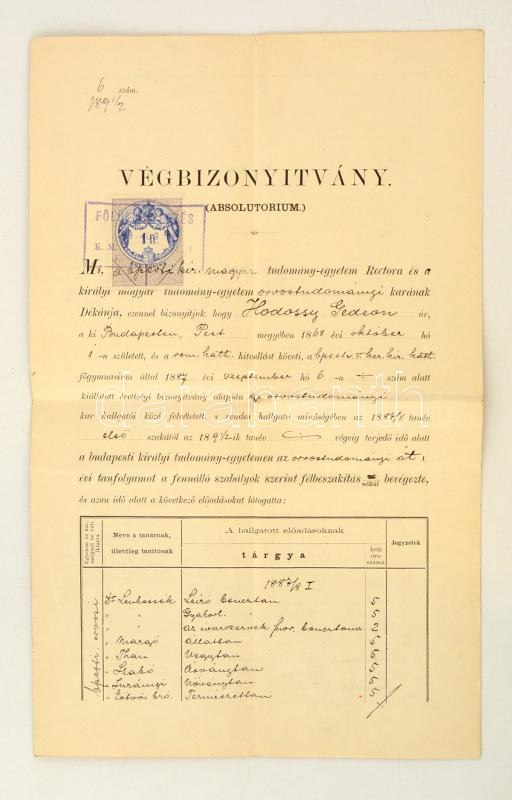 6 szám.
1891/2
VÉGBIZONYITVÁNY.
(ABSOLUTORIUM.)
FÖL
ÉS
K. M.
1 fl
Mi, a bpesti kir. magyar tudomány-egyetem Rectora és a
királyi magyar tudomány-egyetem orvostudományi karának
Dékánja, ezennel bizonyitjuk, hogy Hodossy Gedeon úr,
a ki Budapesten, Pest megyében 1868 évi október hó
1-n született, és a rom. kath. hitvallást követi, a bpesti V. ker. kir. kath.
főgymnasium által 1887 évi szeptember hó 6-n szám alatt
kiállitott érettségi bizonyitvány alapján az orvostudományi
kar hallgatói közé felvétetett, s rendes hallgató minőségében az 1887/8 tanév
első szakától az 1891/2-ik tanév végeig terjedő idő alatt
a budapesti királyi tudomány-egyetemen az orvostudományi öt
évi tanfolyamot a fennálló szabályok szerint félbeszakitás nélkül bevégezte,
és azon idő alatt a következő előadásokat látogatta:
Neve a tanárnak, illetőleg tanitónak
A hallgatott előadásoknak
tárgya
heti óraszáma
Jegyzetek
1887/8 I
bpesti orvosi
Dr Lenhossék Leiró bonctan 5
" " Gyakorl. 5
" " Az érzszervek bonctana 2
" Margó Állattan 5
" Than Vegytan 5
" Szabó Ásványtan 5
" Jurányi Növénytan 5
" Eötvös bró. Természettan 5
darabanth